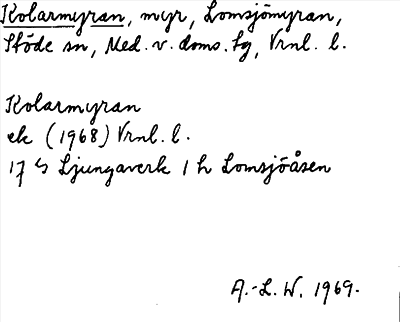 Kolarmyran, myr, Lomsjömyran,
Stöde sn, Med. v. doms. tg, Vrnl. l.
Kolarmyran
ek (1968) Vrnl. l.
17 G Ljungaverk 1 h Lomsjöåsen
A.-L. W. 1969.